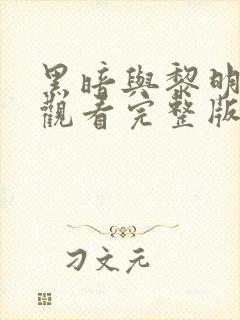 黑暗與黎明
觀看完整版
刁文元